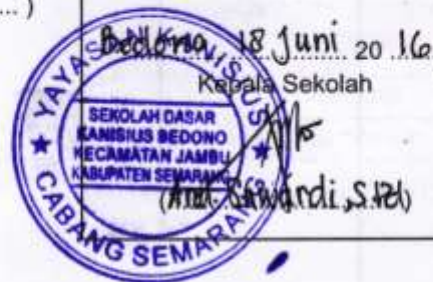 ... )
Bedono, 18 Juni 20 16
Kepala Sekolah
YAYASAN KANISIUS
SEKOLAH DASAR
KANISIUS BEDONO
KECAMATAN JAMBU
KABUPATEN SEMARANG
CABANG SEMARANG
Suwardi, S.Pd)